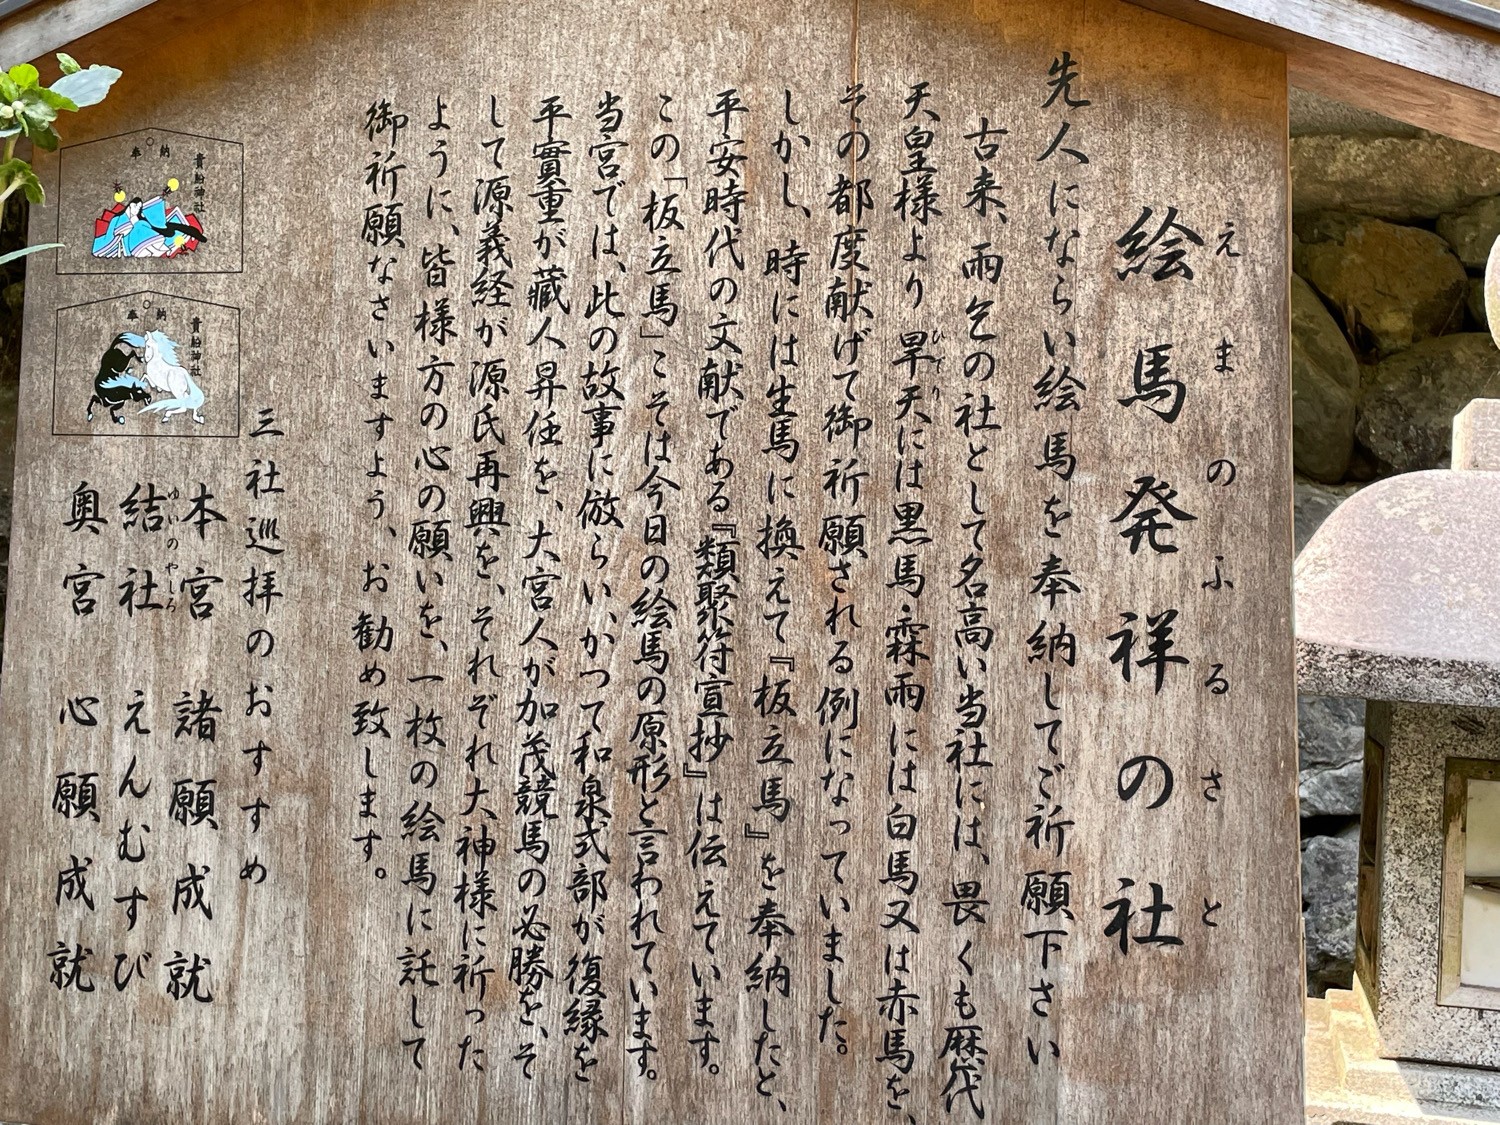 えまのふるさと
絵馬発祥の社
先人にならい絵馬を奉納してご祈願下さい
古来、雨乞の社として名高い当社には、畏くも歴代
天皇様より旱天には黒馬霖雨には白馬又は赤馬を、
ひでり
その都度献げて御祈願される例になっていました。
しかし、時には生馬に換えて『板立馬』を奉納したと、
平安時代の文献である『類聚符宣抄』は伝えています。
この「板立馬」こそは今日の絵馬の原形と言われています。
当宮では、此の故事に倣らい、かつて和泉式部が復縁を
平實重が蔵人昇任を、大宮人が加茂競馬の必勝を、そ
して源義経が源氏再興を、それぞれ大神様に祈った
ように、皆様方の心の願いを、一枚の絵馬に託して
御祈願なさいますよう、お勧め致します。
三社巡拝のおすすめ
本宮 諸願成就
ゆいのやしろ
結社 えんむすび
奥宮 心願成就
貴船神社
奉納
貴船神社
奉納